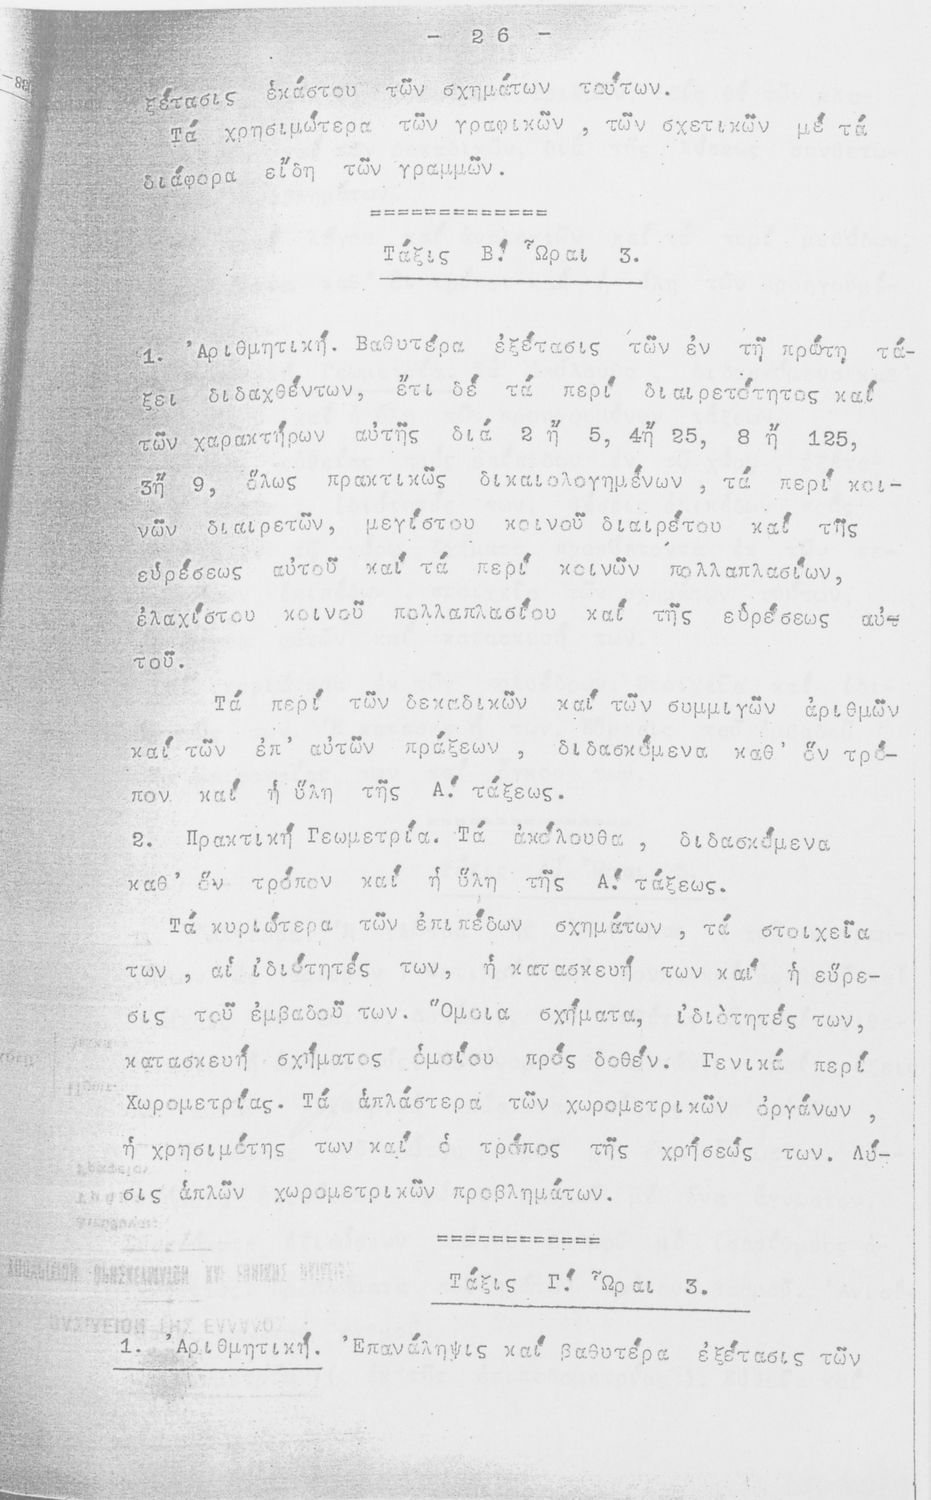 - 26 -
ξέτασις ἑκάστου τῶν σχημάτων τούτων.
Τά χρησιμώτερα τῶν γραφικῶν , τῶν σχετικῶν μέ τά
διάφορα εἴδη τῶν γραμμῶν.
=============
Τάξις Β! Ὧραι 3.
1. Ἀριθμητική. Βαθυτέρα ἐξέτασις τῶν ἐν τῇ πρώτῃ τά-
ξει διδαχθέντων, ἔτι δέ τά περί διαιρετότητος καί
τῶν χαρακτήρων αὐτῆς διά 2 ἤ 5, 4ἤ 25, 8 ἤ 125,
3ἤ 9, ὅλως πρακτικῶς δικαιολογημένων , τά περί κοι-
νῶν διαιρετῶν, μεγίστου κοινοῦ διαιρέτου καί τῆς
εὑρέσεως αὐτοῦ καί τά περί κοινῶν πολλαπλασίων,
ἐλαχίστου κοινοῦ πολλαπλασίου καί τῆς εὑρέσεως αὐ-
τοῦ.
Τά περί τῶν δεκαδικῶν καί τῶν συμμιγῶν ἀριθμῶν
καί τῶν ἐπ' αὐτῶν πράξεων , διδασκόμενα καθ' ὅν τρό-
πον καί ἡ ὕλη τῆς Α! τάξεως.
2. Πρακτική Γεωμετρία. Τά ἀκόλουθα , διδασκόμενα
καθ' ὅν τρόπον καί ἡ ὕλη τῆς Α! τάξεως.
Τά κυριώτερα τῶν ἐπιπέδων σχημάτων , τά στοιχεῖα
των , αἱ ἰδιότητές των, ἡ κατασκευή των καί ἡ εὕρε-
σις τοῦ ἐμβαδοῦ των. Ὅμοια σχήματα, ἰδιότητές των,
κατασκευή σχήματος ὁμοίου πρός δοθέν. Γενικά περί
Χωρομετρίας. Τά ἁπλάστερα τῶν χωρομετρικῶν ὀργάνων ,
ἡ χρησιμότης των καί ὁ τρόπος τῆς χρήσεώς των. Λύ-
σις ἁπλῶν χωρομετρικῶν προβλημάτων.
============
Τάξις Γ! Ὧραι 3.
1. Ἀριθμητική. Ἐπανάληψις καί βαθυτέρα ἐξέτασις τῶν